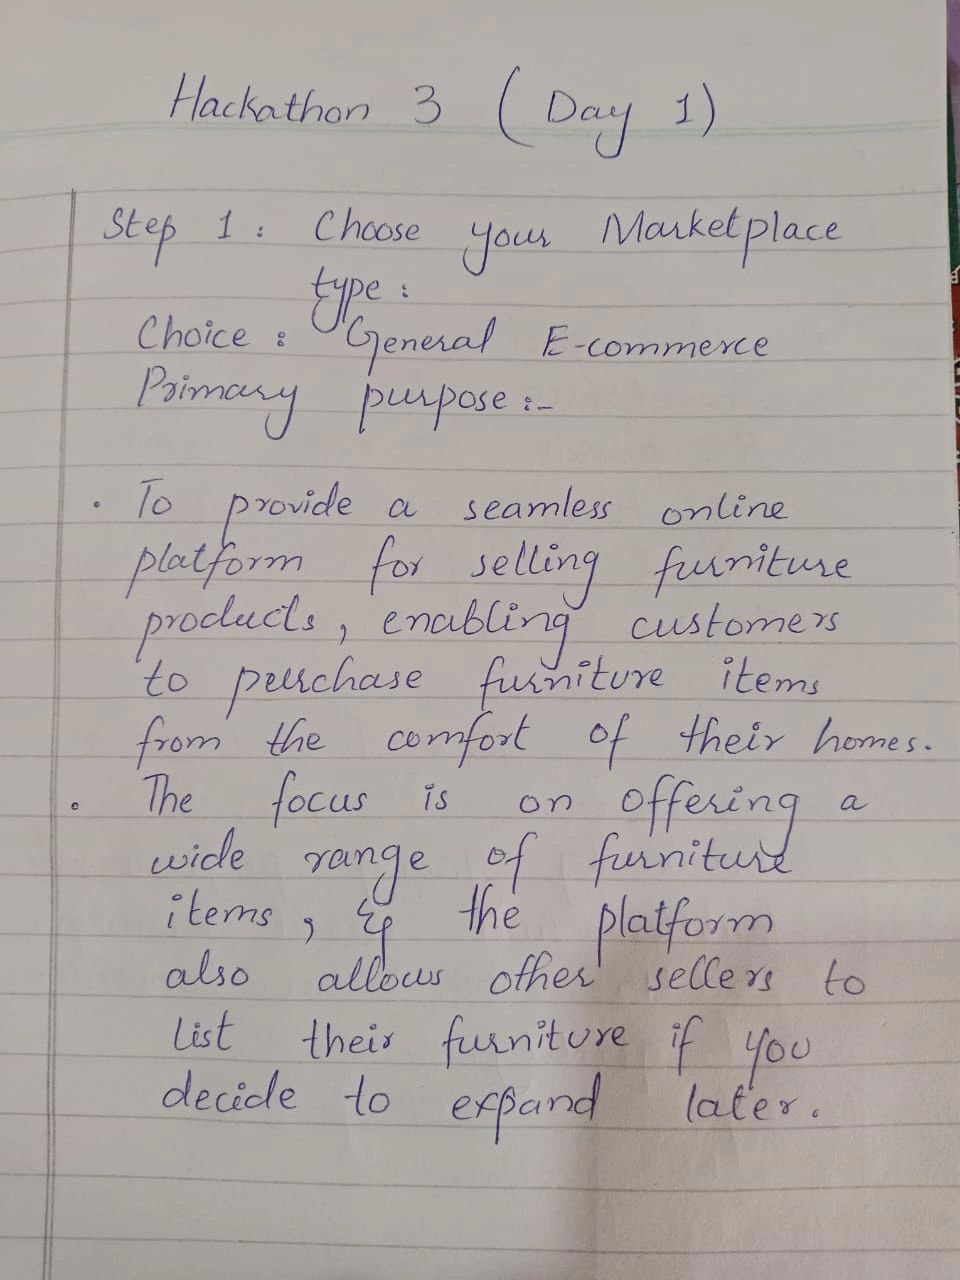 Hackathon 3 (Day 1)
Step 1: Choose your Marketplace
type:
Choice: General E-commerce
Primary purpose:-
• To provide a seamless online
platform for selling furniture
products, enabling customers
to purchase furniture items
from the comfort of their homes.
• The focus is on offering a
wide range of furniture
items, & the platform
also allows other sellers to
list their furniture if you
decide to expand later.